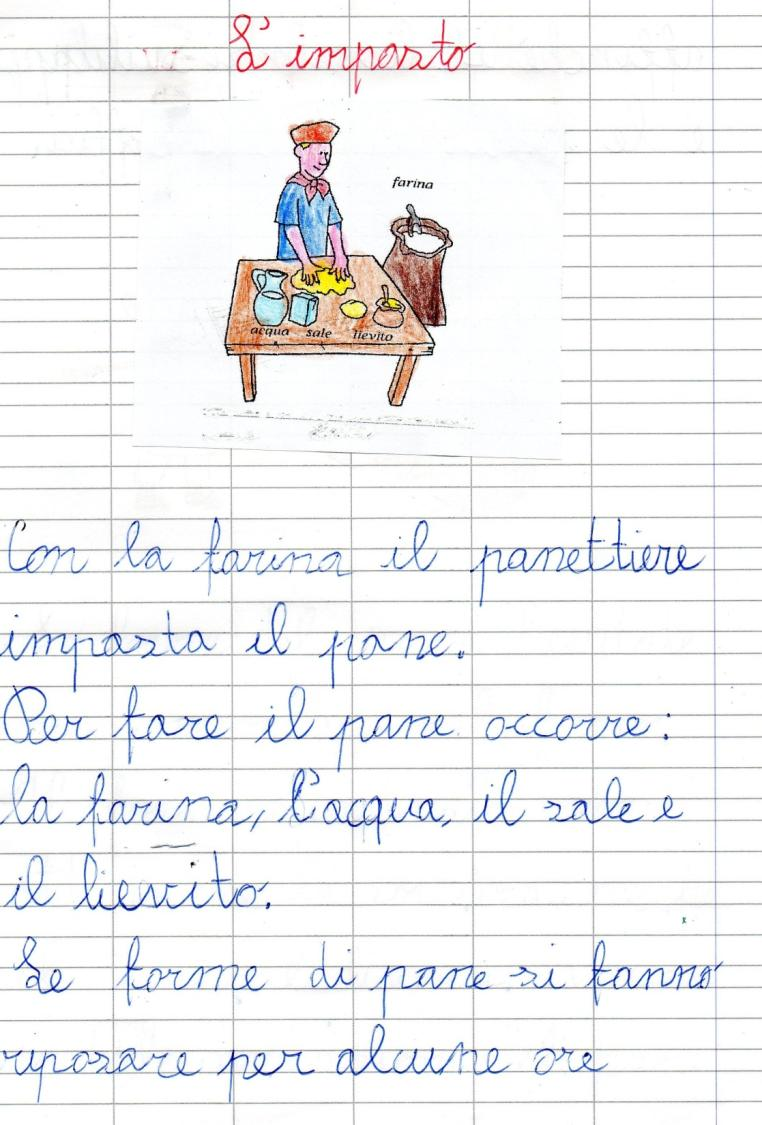 L'impasto
farina
acqua sale lievito
Con la farina il panettiere
impasta il pane.
Per fare il pane occorre:
la farina, l'acqua, il sale e
il lievito.
Le forme di pane si fanno
riposare per alcune ore